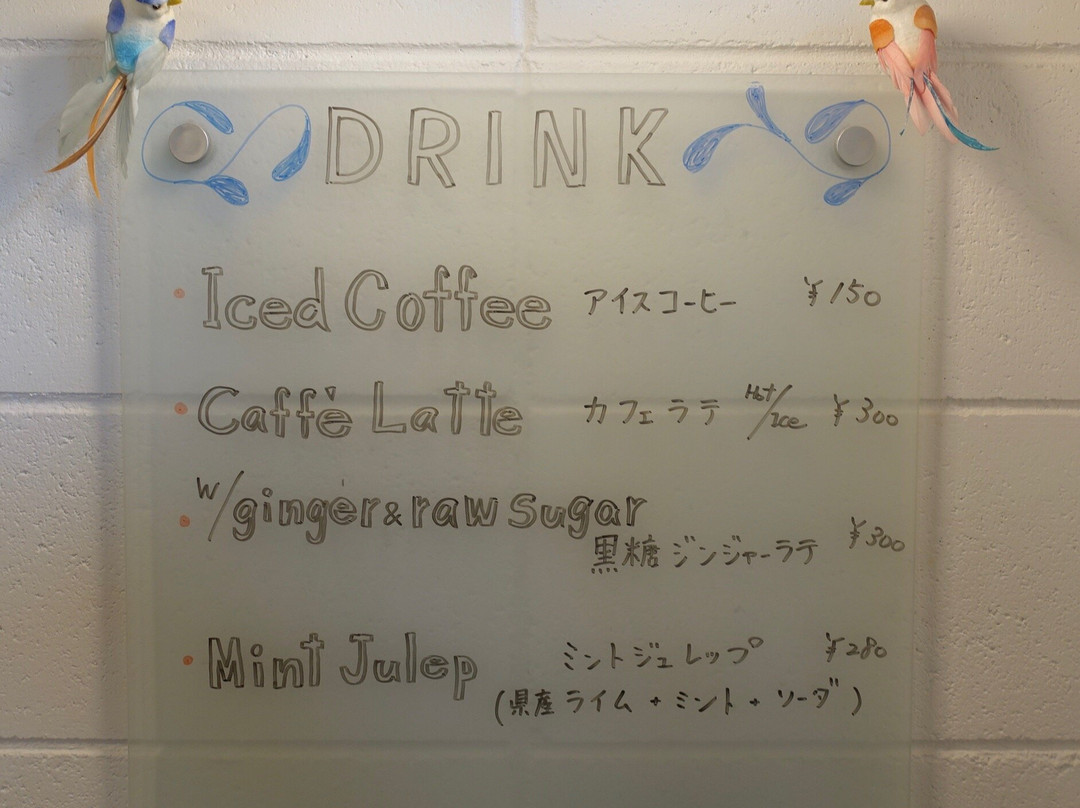 DRINK
Iced Coffee アイスコーヒー ¥150
Caffè Latte カフェラテ Hot/Ice ¥300
w/ginger & raw sugar
黒糖ジンジャーラテ ¥300
Mint Julep ミントジュレップ ¥280
(県産ライム + ミント + ソーダ)